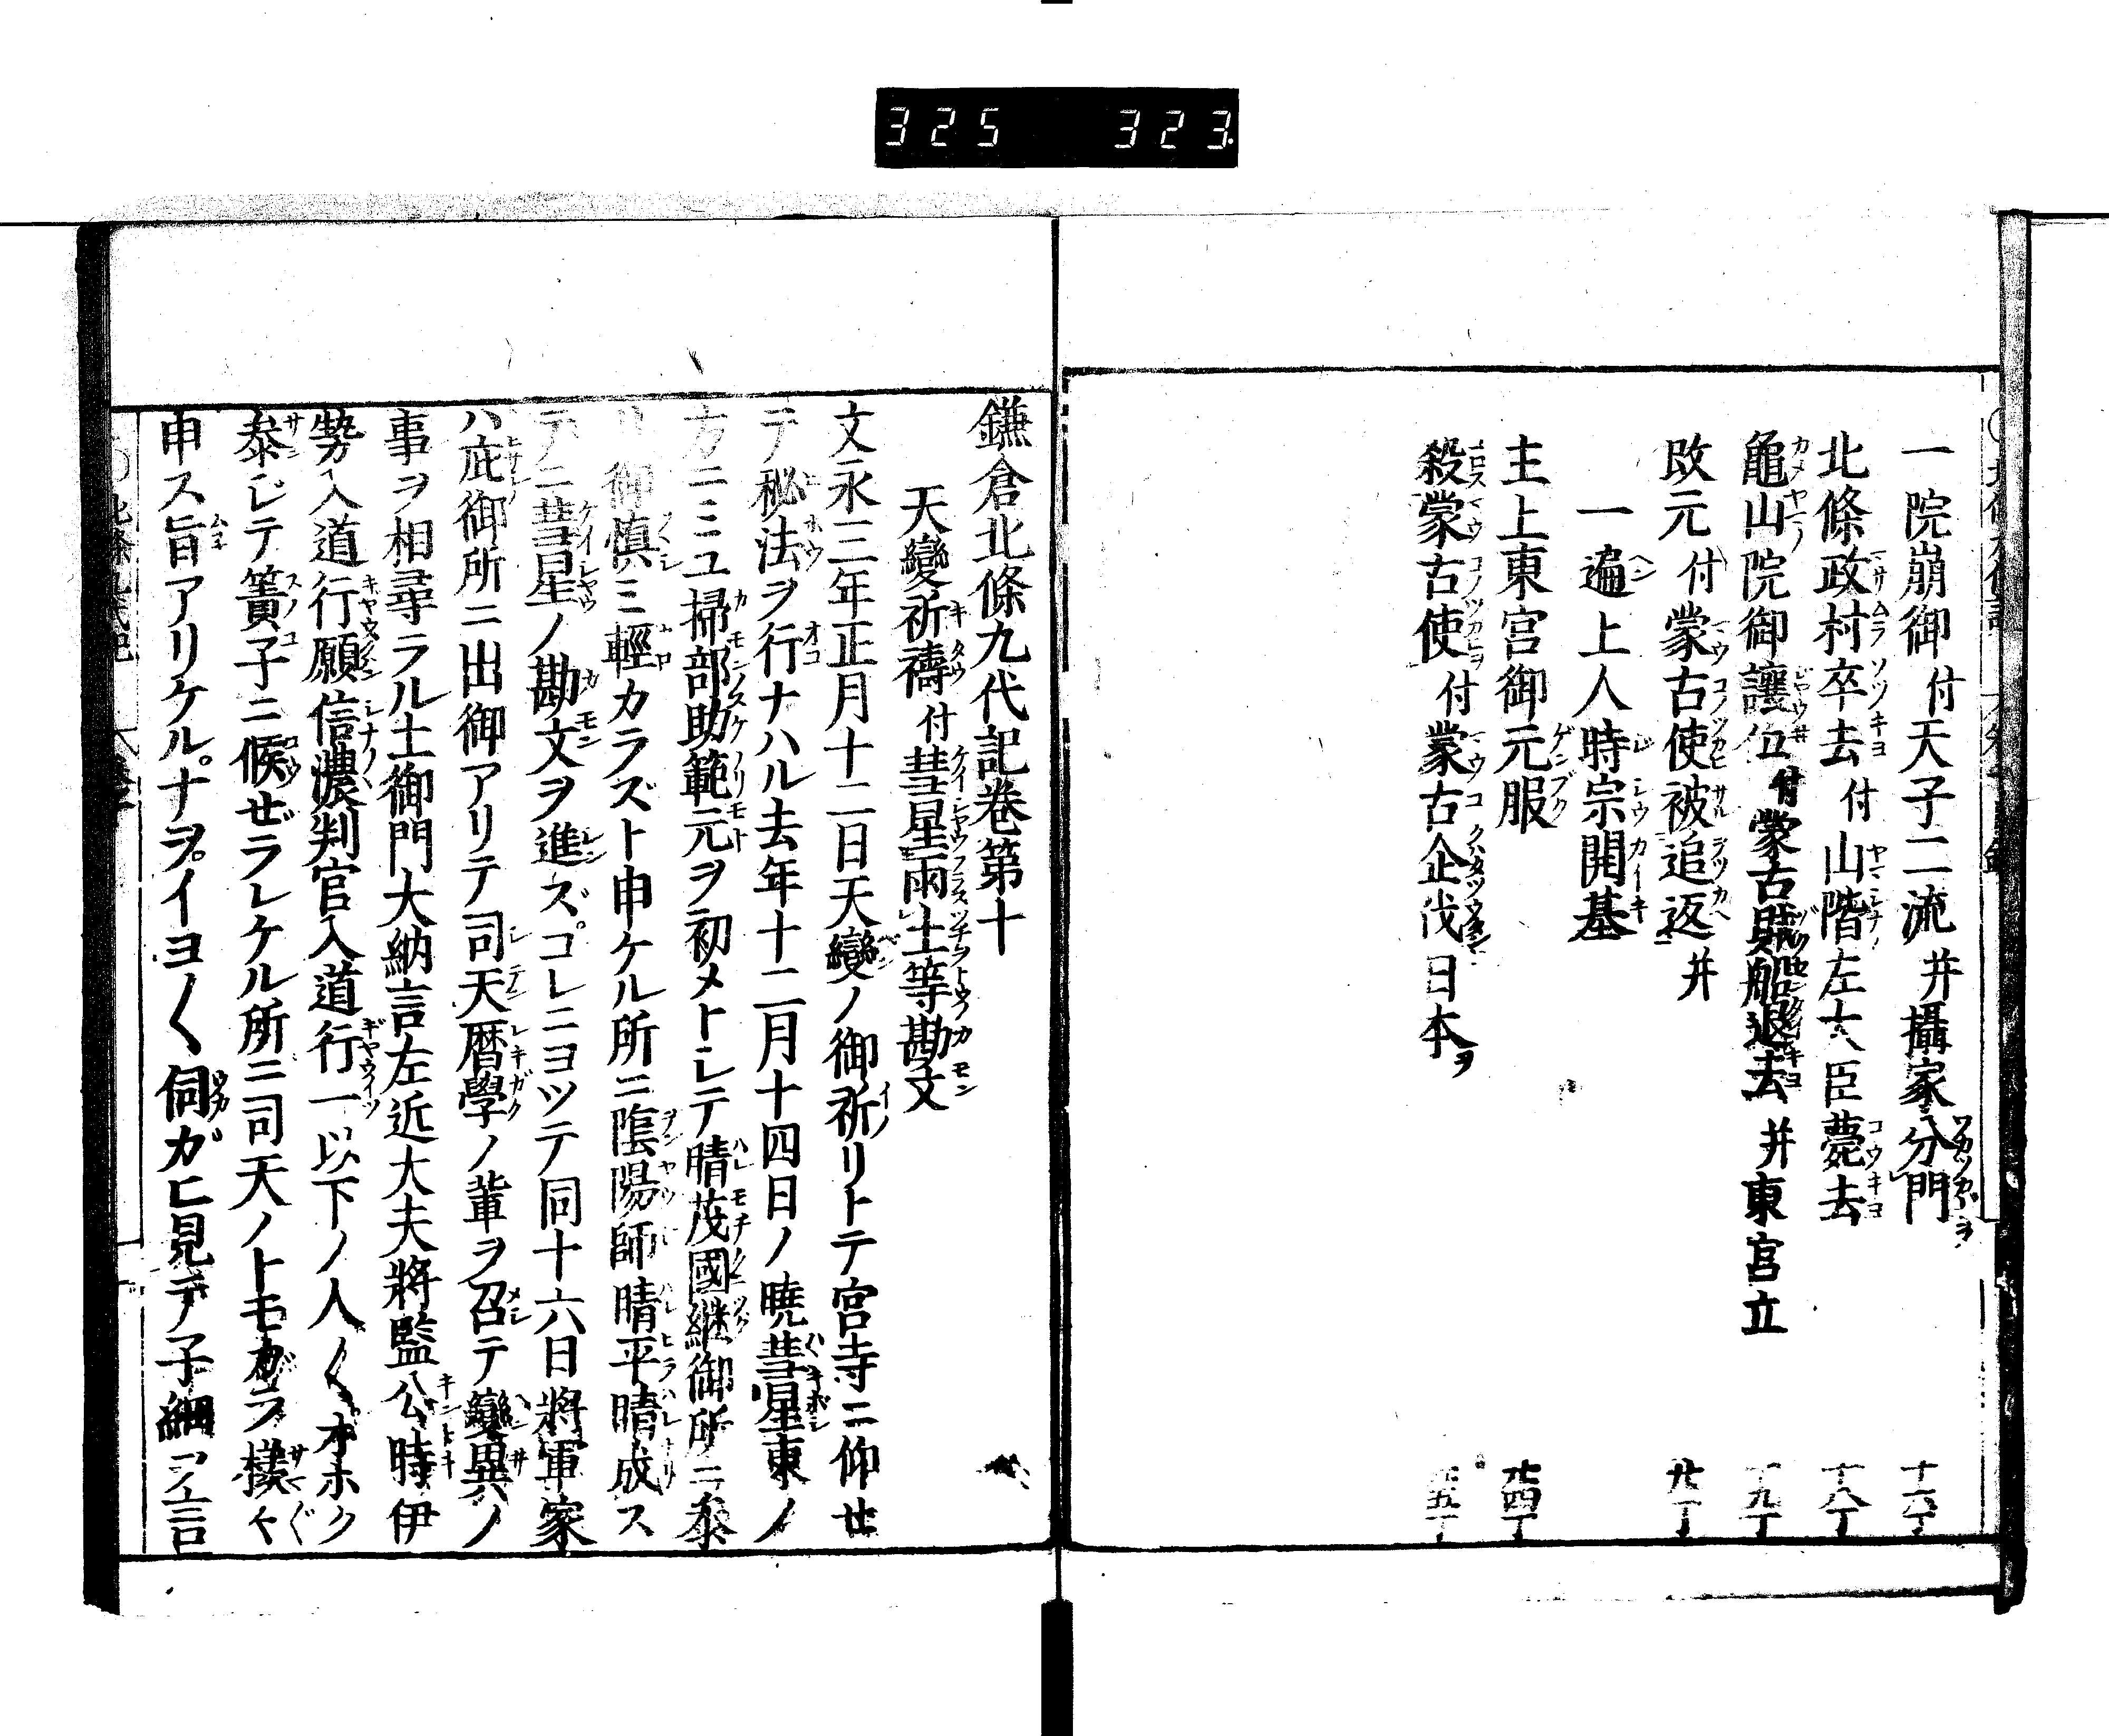 325 323
一院崩御付天子二流并攝家分門 十六丁
北條政村卒去付山階左大臣薨去 十八丁
亀山院御讓位付蒙古賊船退去并東宮立 十九丁
改元付蒙古使被追返并
一遍上人時宗開基 廿一丁
主上東宮御元服 廿四丁
殺蒙古使付蒙古企伐日本ヲ 廿五丁
鎌倉北條九代記巻第十
天變祈禱付彗星雨土等勘文
文永三年正月十二日天變ノ御祈リトテ宮寺ニ仰せ
テ秘法ヲ行ナハル去年十二月十四日ノ曉彗星東ノ
方ニミユ掃部助範元ヲ初メトシテ晴茂國継御所ニ泰
リ御慎ミ輕カラズト申ケル所ニ陰陽師晴平晴成ス
デニ彗星ノ勘文ヲ進ズコレニヨツテ同十六日將軍家
ハ庇御所ニ出御アリテ司天暦學ノ輩ヲ召テ變異ノ
事ヲ相尋ラル土御門大納言左近大夫將監公時伊
勢入道行願信濃判官入道行一以下ノ人〱オホク
泰じテ簀子ニ候ぜラレケル所ニ司天ノトモガラ樣々
申ス旨アリケルナヲイヨ〱伺ガヒ見テ子細ヲ言